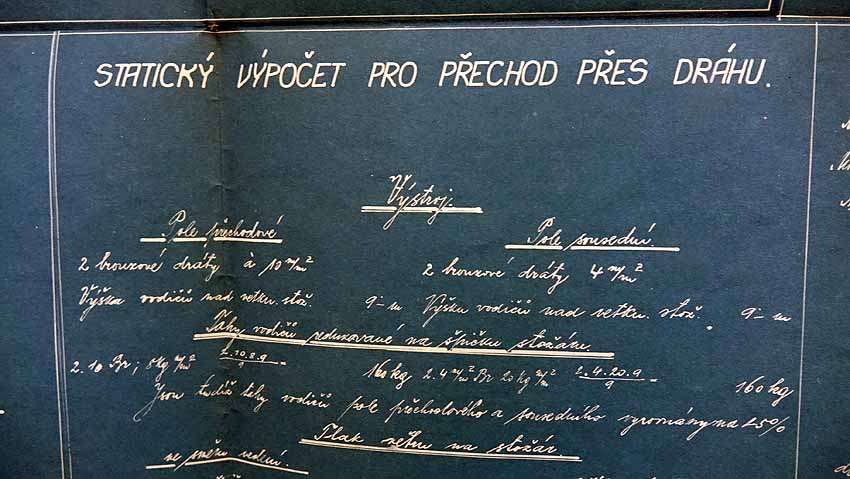 STATICKÝ VÝPOČET PRO PŘECHOD PŘES DRÁHU.
Výstroj.
Pole přechodové
Pole sousední
2 bronzové dráty à 10 m/m²
2 bronzové dráty 4 m/m²
Výška vodičů nad vetkn. stož. 9 - m
Výška vodičů nad vetkn. stož. 9 - m
Tahy vodičů redukované na špičku stožáru.
2. 10 Br; 8 kg m/m² 2.10.8.9 / 9 = 160 kg
2. 4 m/m² Br 20 kg m/m² 2.4.20.9 / 9 = 160 kg
Jsou tudíž tahy vodičů pole přechodového a sousedního vyrovnány na 25%
Tlak větru na stožár.
ve směru vedení.